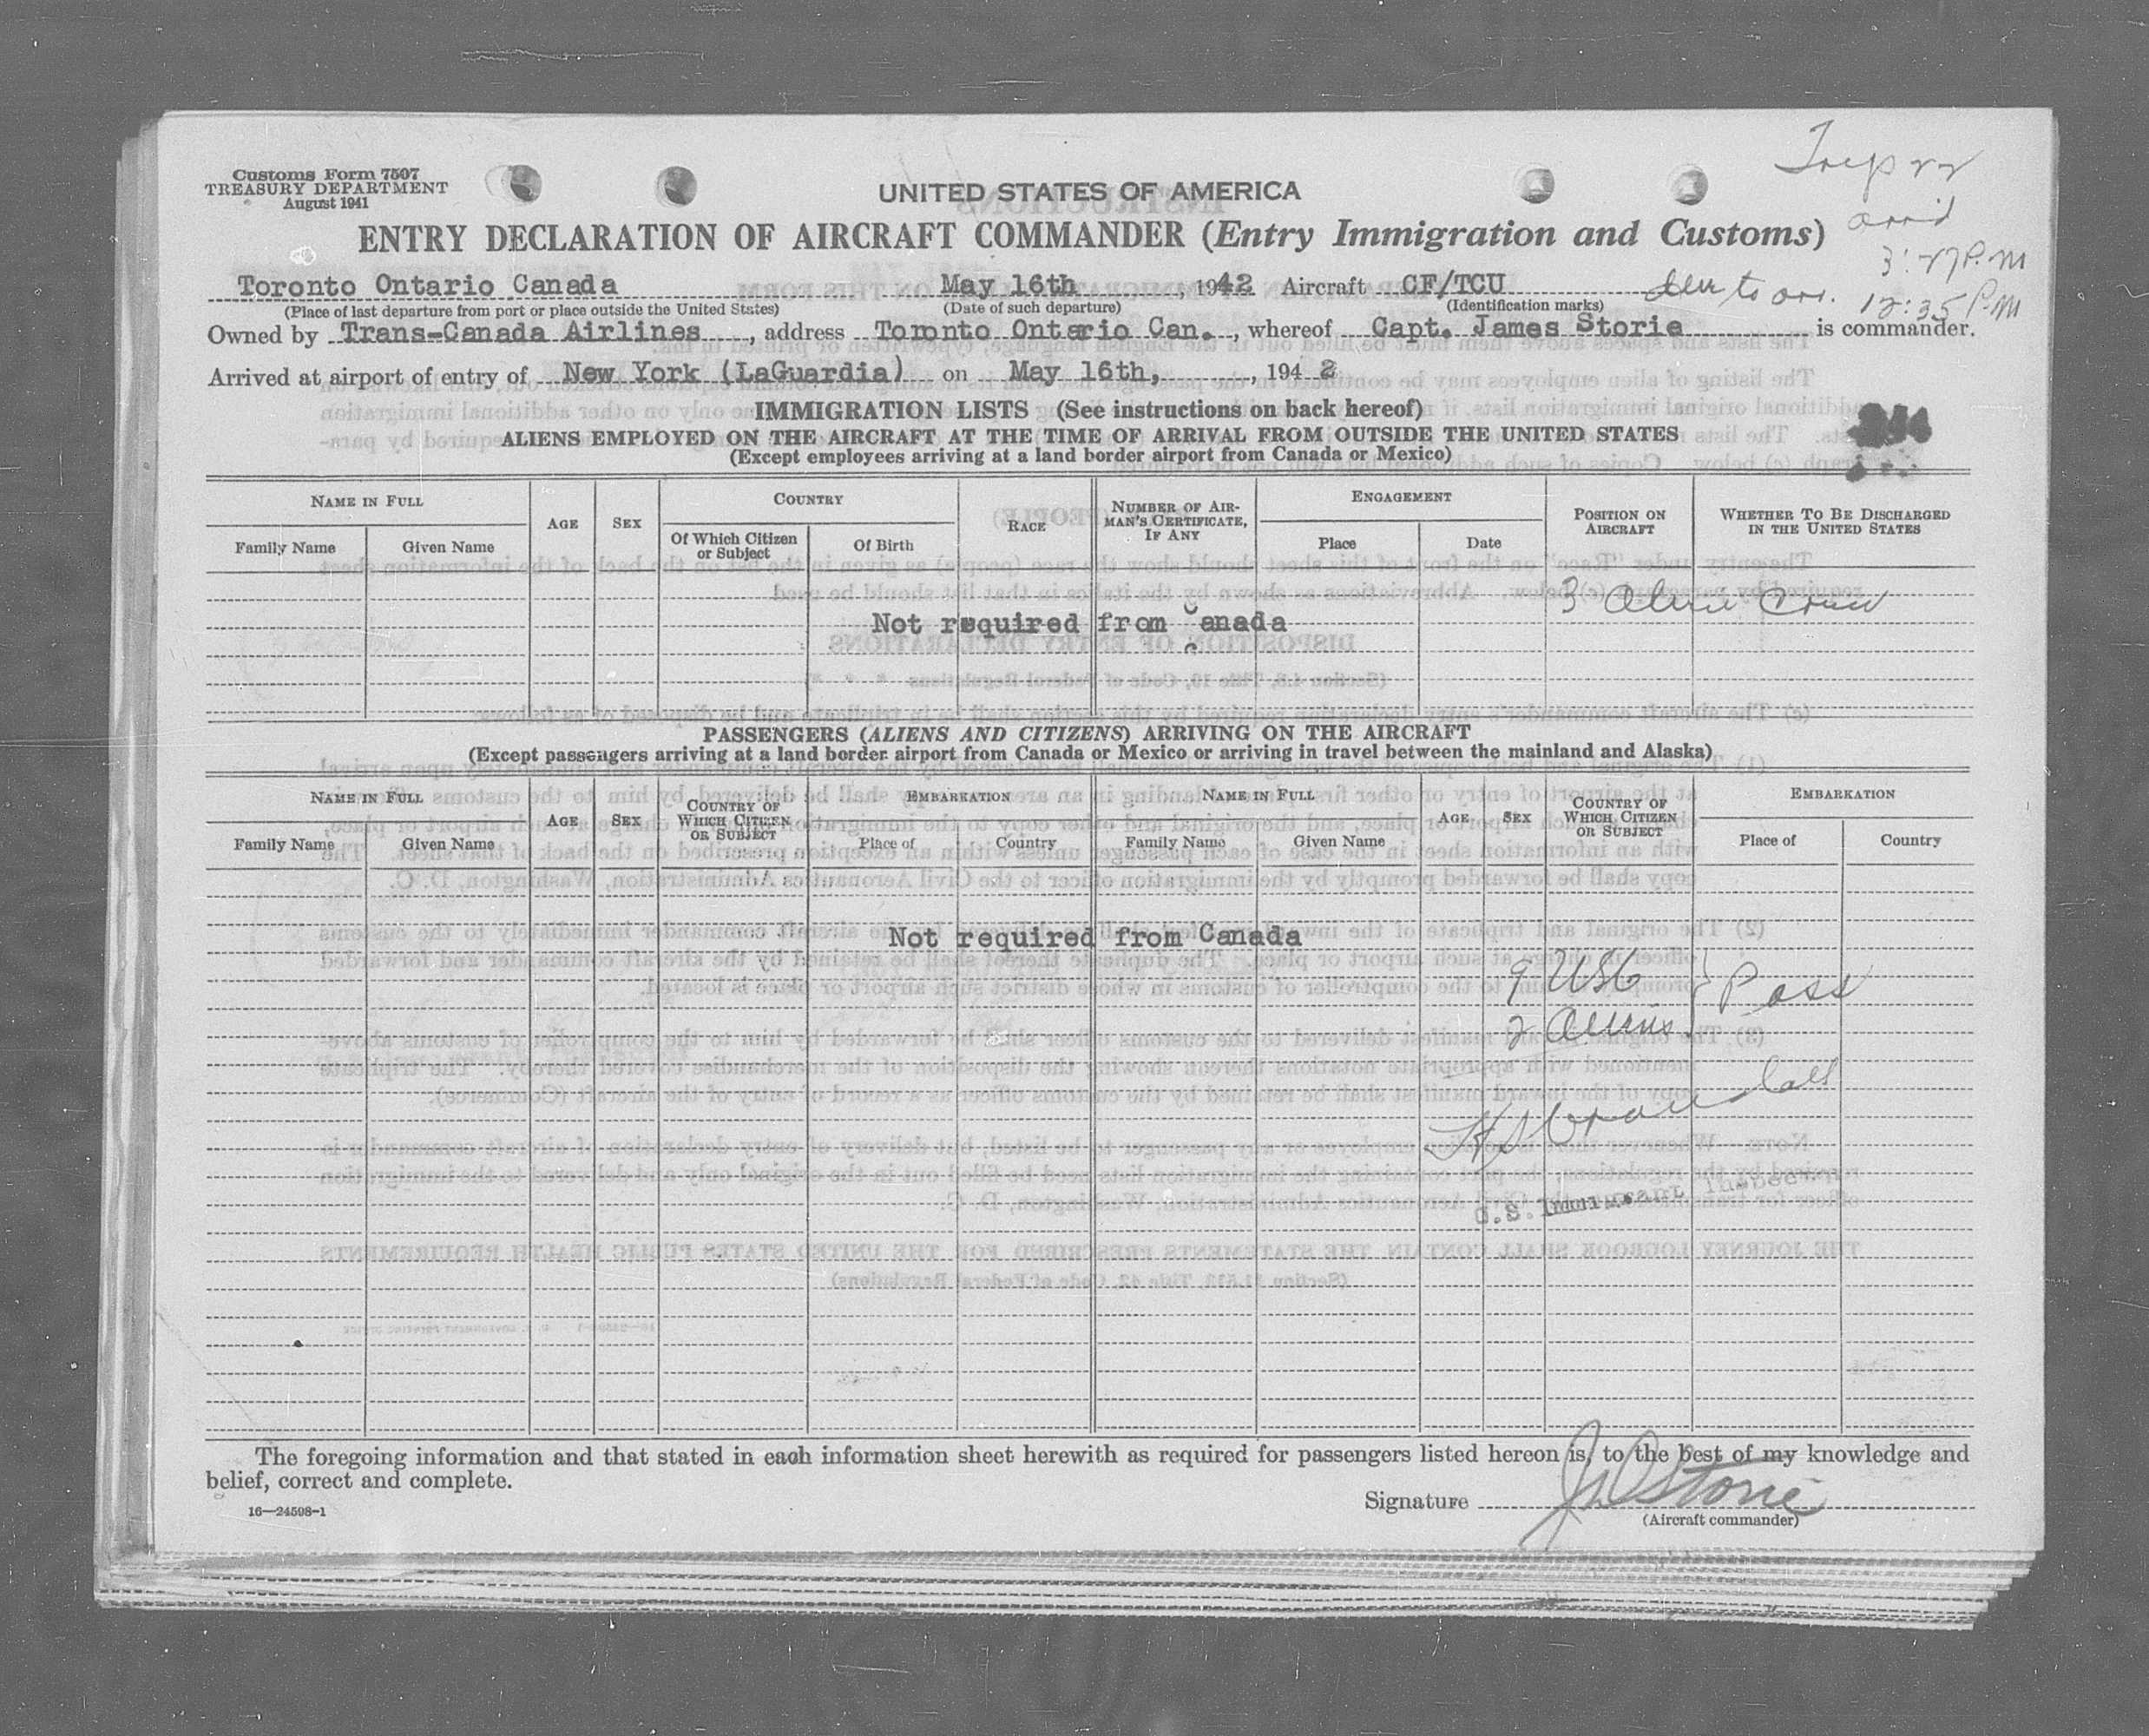 Customs Form 7507
TREASURY DEPARTMENT
August 1941
UNITED STATES OF AMERICA
ENTRY DECLARATION OF AIRCRAFT COMMANDER (Entry Immigration and Customs)
arr'd
3:27 P.M
12:35 P.M
Toronto Ontario Canada May 16th, 1942 Aircraft CF/TCU
(Place of last departure from port or place outside the United States) (Date of such departure) (Identification marks)
Owned by Trans-Canada Airlines, address Toronto Ontario Can., whereof Capt. James Storie is commander.
Arrived at airport of entry of New York (LaGuardia) on May 16th, 1942
IMMIGRATION LISTS (See instructions on back hereof)
ALIENS EMPLOYED ON THE AIRCRAFT AT THE TIME OF ARRIVAL FROM OUTSIDE THE UNITED STATES
(Except employees arriving at a land border airport from Canada or Mexico)
NAME IN FULL AGE SEX COUNTRY RACE NUMBER OF AIRMAN'S CERTIFICATE, IF ANY ENGAGEMENT POSITION ON AIRCRAFT WHETHER TO BE DISCHARGED IN THE UNITED STATES
Family Name Given Name Of Which Citizen or Subject Of Birth Place Date
3 Alien Crew
Not required from Canada
PASSENGERS (ALIENS AND CITIZENS) ARRIVING ON THE AIRCRAFT
(Except passengers arriving at a land border airport from Canada or Mexico or arriving in travel between the mainland and Alaska)
NAME IN FULL AGE SEX COUNTRY OF WHICH CITIZEN OR SUBJECT EMBARKATION NAME IN FULL AGE SEX COUNTRY OF WHICH CITIZEN OR SUBJECT EMBARKATION
Family Name Given Name Place of Country Family Name Given Name Place of Country
Not required from Canada
9 USC
Pass
2 Aliens
U.S. Immigrant Inspector
The foregoing information and that stated in each information sheet herewith as required for passengers listed hereon is, to the best of my knowledge and
belief, correct and complete.
16—24598-1
Signature J Storie
(Aircraft commander)